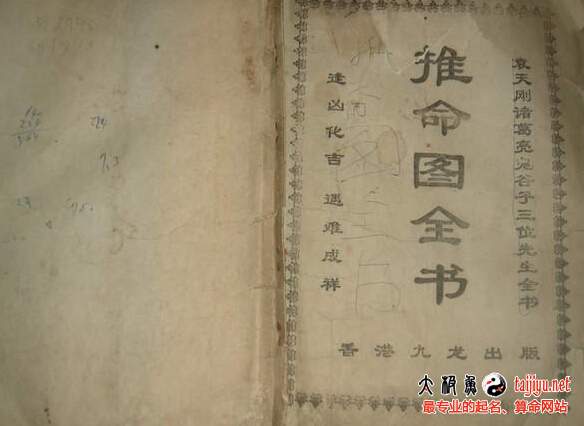 袁天刚诸葛亮鬼谷子三位先生全书
推命图全书
逢凶化吉 遇难成祥
香港九龙出版
大极鱼 taijiyu.net
最专业的起名、算命网站